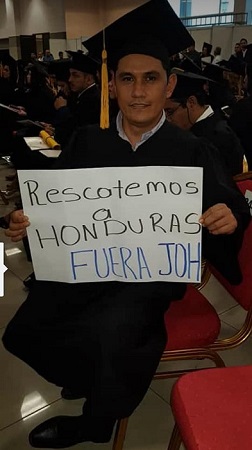 Rescatemos
a
HONDURAS
FUERA JOH